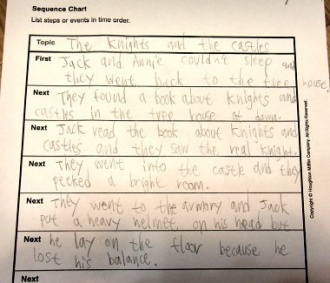 Sequence Chart
List steps or events in time order.
Topic The Knights and the castles
First Jack and Annie couldn't sleep and
they went back to the tree house
Next They found a book about knights and
castles in the tree house at dawn.
Next Jack read the book about knights and
castles and they saw the real knight.
Next They went into the castle and they
pecked a bright room.
Next They went to the armory and Jack
put a heavy helmet on his head but
Next he lay on the floor because he
lost his balance.
Next
Copyright © Houghton Mifflin Company. All Rights Reserved.